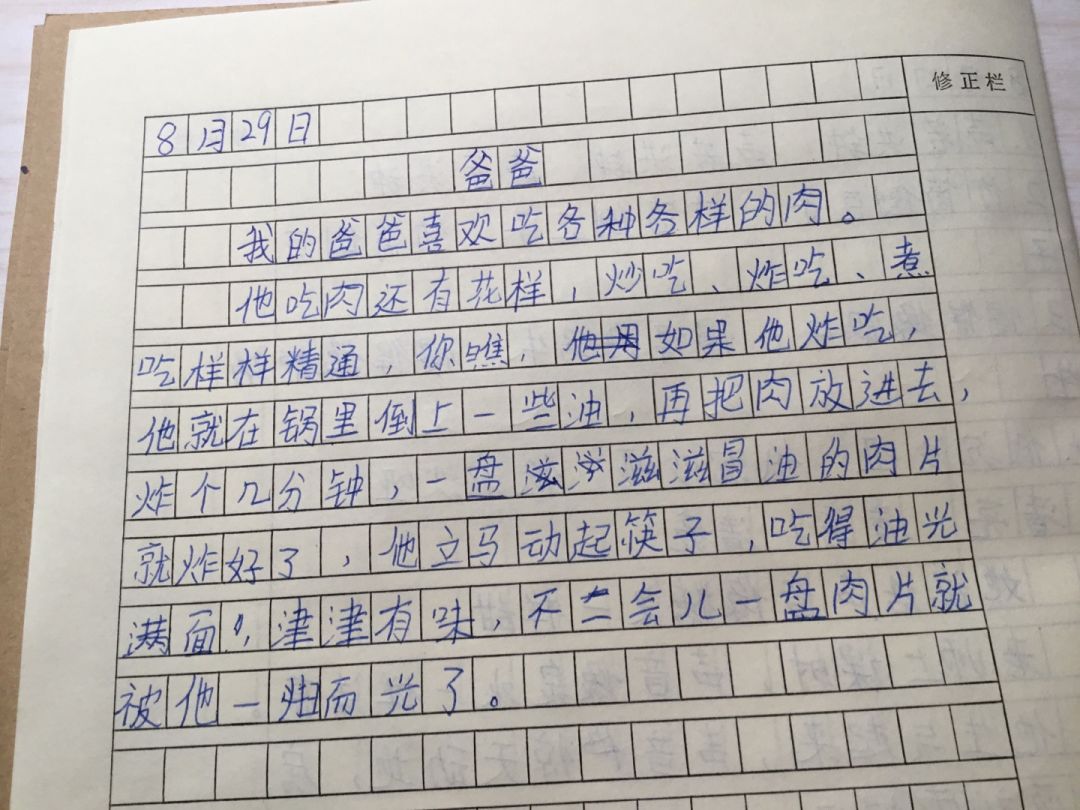 修正栏
8月29日
爸爸
我的爸爸喜欢吃各种各样的肉。
他吃肉还有花样，炒吃、炸吃、煮
吃样样精通，你瞧，他用如果他炸吃，
他就在锅里倒上一些油，再把肉放进去，
炸个几分钟，一盘滋滋滋滋冒油的肉片
就炸好了，他立马动起筷子，吃得油光
满面，津津有味，不一会儿一盘肉片就
被他一扫而光了。